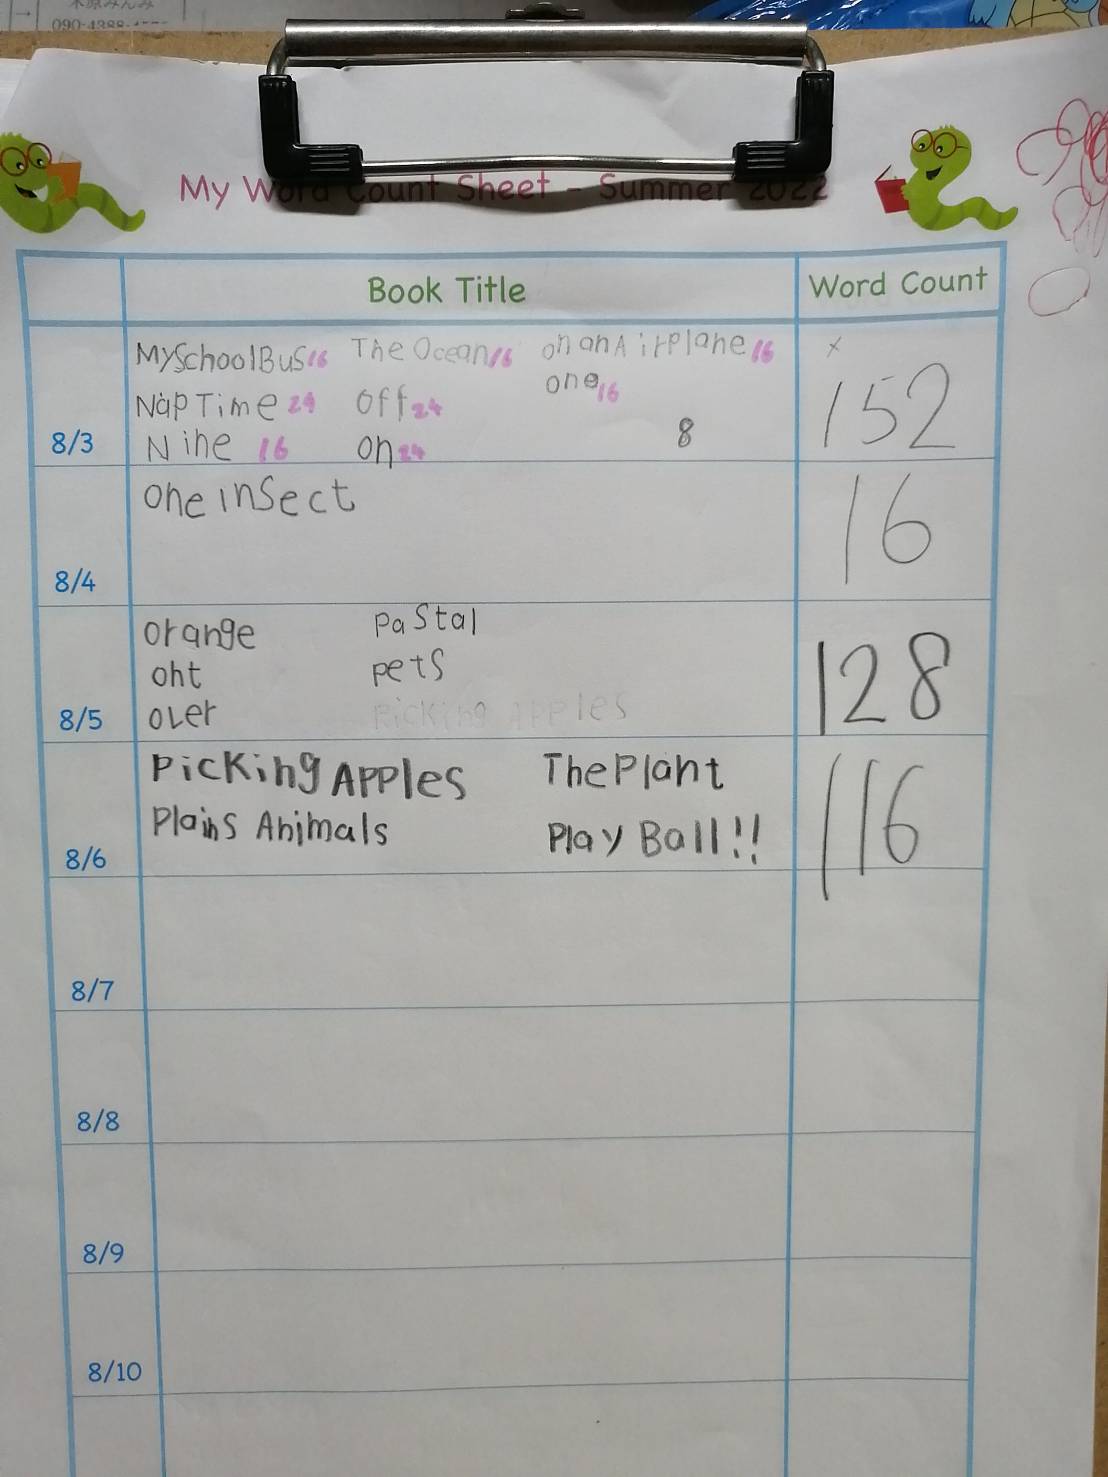 木原みんみ
My Word Count Sheet - Summer 2022
Book Title Word Count
MySchoolBus16 The Ocean16 on an Airplane 16 x
one16
Nap Time 24 Off24
8/3 Nine 16 on24 8 152
one insect
8/4 16
orange pastal
oht pets
8/5 over Picking Apples 128
Picking Apples The Plant
8/6 Plains Animals Play Ball!! 116
8/7
8/8
8/9
8/10